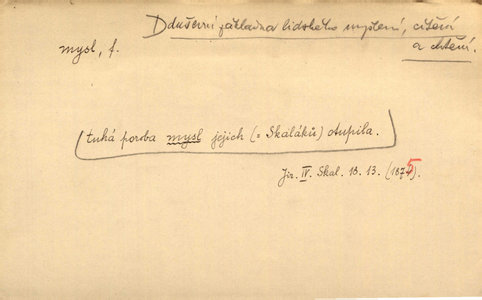 Dduševní základna lidského myšlení, cítění
a chtění.
mysl, f.
tuhá poroba mysl jejich (= Skaláků) otupila.
Jir. IV. Skal. 18. 13. (1875).